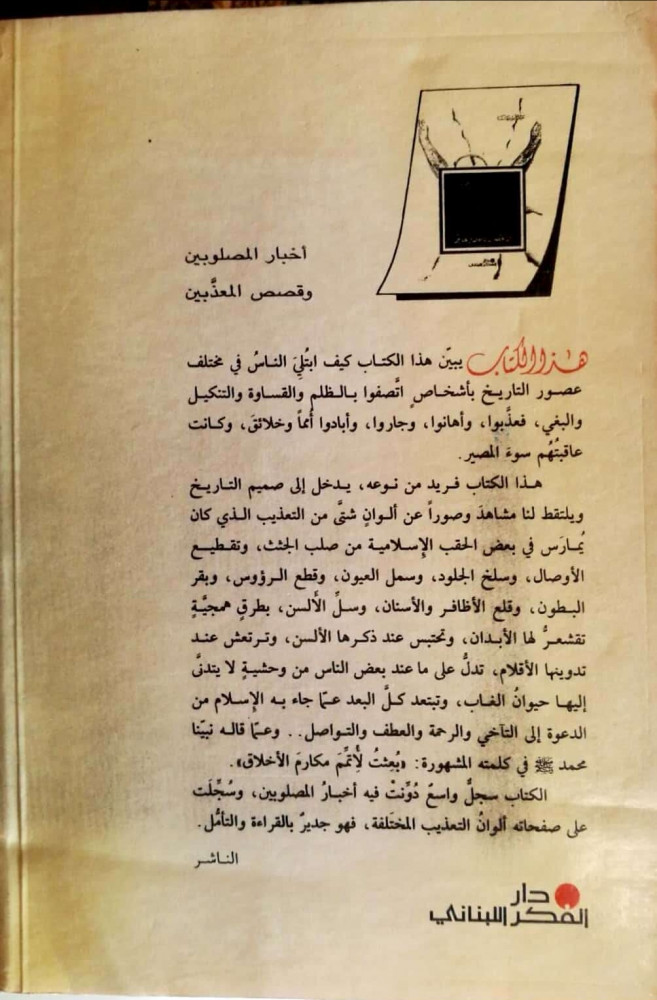 أخبار المصلوبين
وقصص المعذَّبين
هذا الكتاب يبيّن هذا الكتاب كيف ابتُليَ الناسُ في مختلف
عصور التاريخ بأشخاصٍ اتَّصفوا بالظلم والقساوة والتنكيل
والبغي، فعذَّبوا، وأهانوا، وجاروا، وأبادوا أُمماً وخلائقَ، وكانت
عاقبتُهُم سوءَ المصير.
هذا الكتاب فريد من نوعه، يدخل إلى صميم التاريخ
ويلتقط لنا مشاهدَ وصوراً عن ألوانٍ شتَّى من التعذيب الذي كان
يُمارَس في بعض الحقب الإِسلامية من صلب الجثث، وتقطيع
الأوصال، وسلخ الجلود، وسمل العيون، وقطع الرؤوس، وبقر
البطون، وقلع الأظافر والأسنان، وسلِّ الألسن، بطرقٍ همجيَّةٍ
تقشعرُّ لها الأبدان، وتحتبس عند ذكرها الألسن، وترتعش عند
تدوينها الأقلام، تدلُّ على ما عند بعض الناس من وحشيةٍ لا يتدنَّى
إليها حيوانُ الغاب، وتبتعد كلَّ البعد عمّا جاء به الإِسلام من
الدعوة إلى التآخي والرحمة والعطف والتواصل.. وعمّا قاله نبيّنا
محمد ﷺ في كلمته المشهورة: «بُعِثتُ لأُتمِّمَ مكارمَ الأخلاق».
الكتاب سجلٌّ واسعٌ دُوِّنتْ فيه أخبارُ المصلوبين، وسُجِّلَت
على صفحاته ألوانُ التعذيب المختلفة، فهو جديرٌ بالقراءة والتأمُّل.
الناشر
دار
الفكر اللبناني